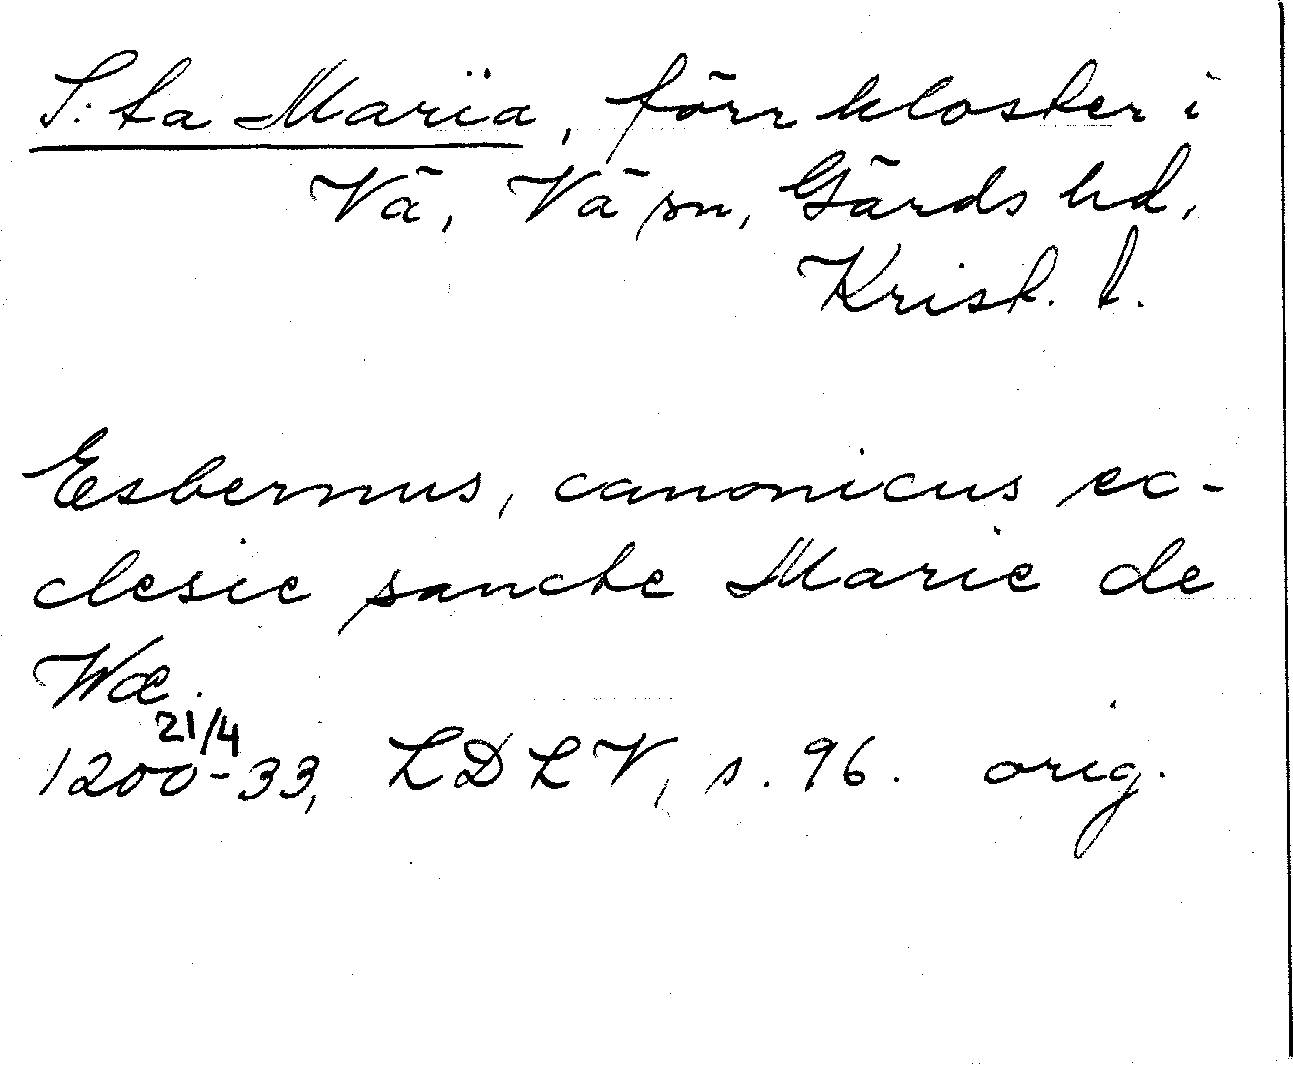 S:ta Maria, förr kloster i
Vä, Vä sn, Gärds hd,
Krist. l.
Esbernus, canonicus ec-
clesie sancte Marie de
Wæ.
21/4
1200-33, LDLV, s. 96. orig.